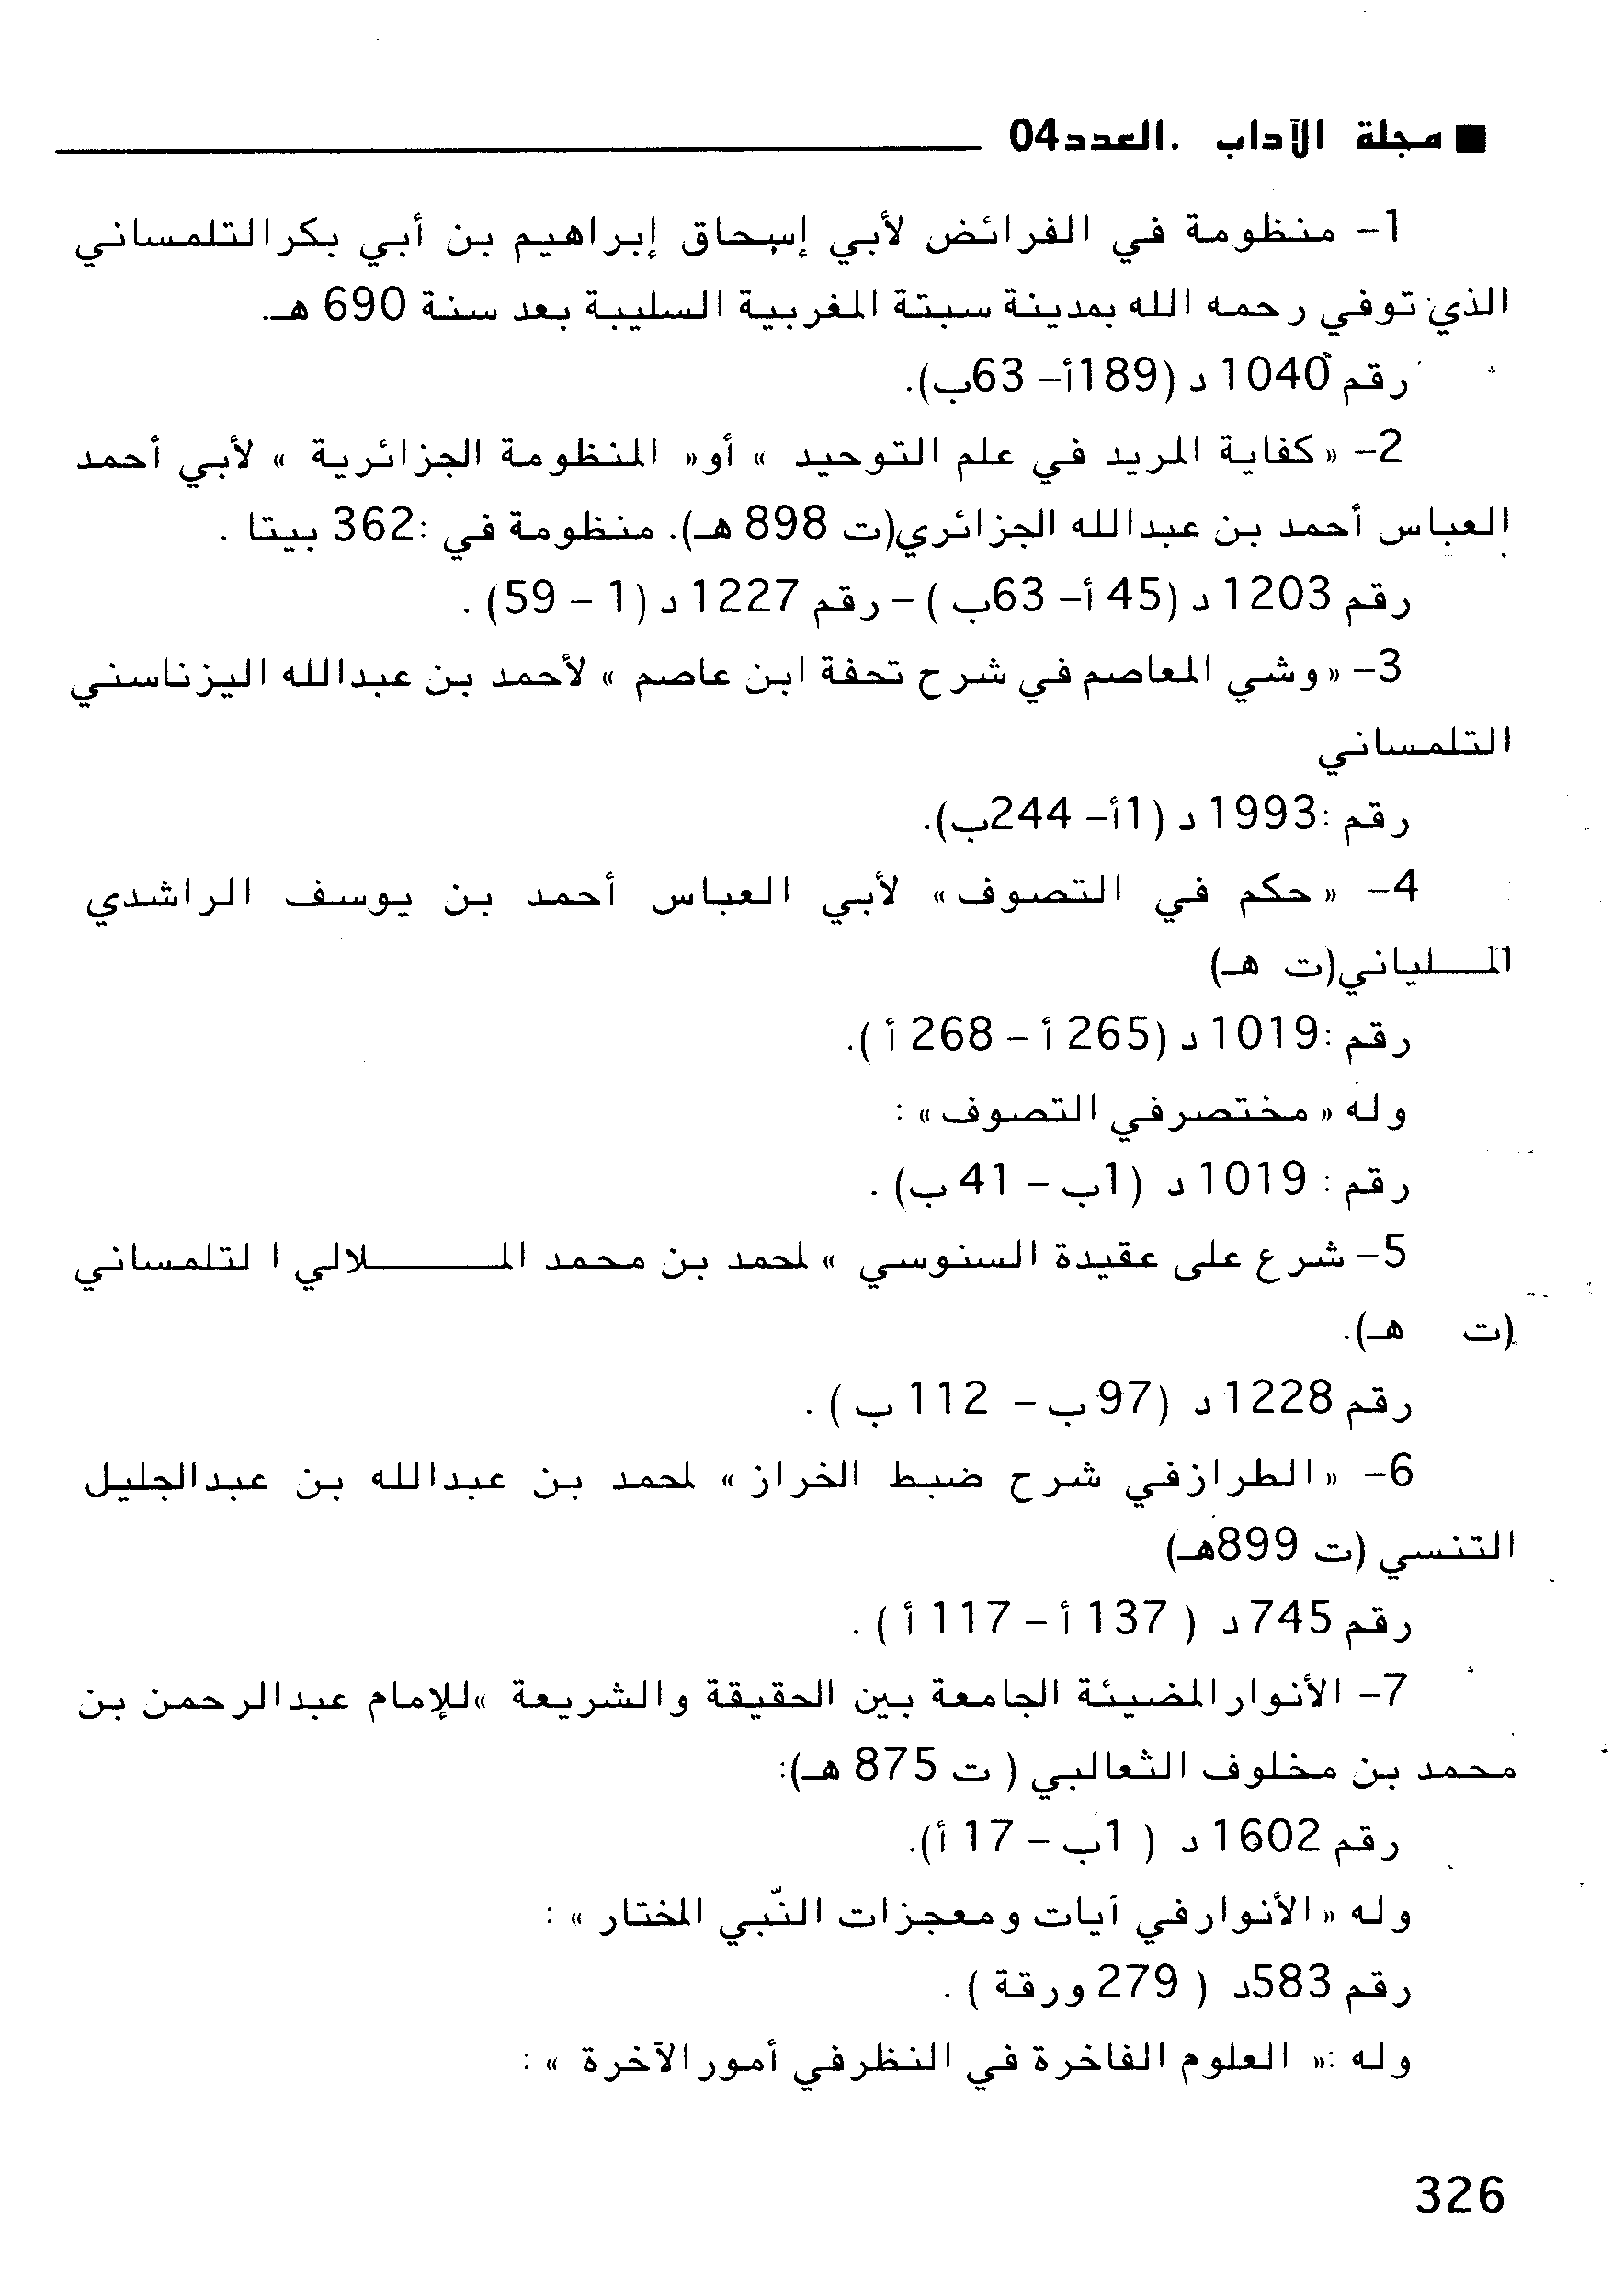 ■ مجلة الآداب .العدد04
1- منظومة في الفرائض لأبي إسحاق إبراهيم بن أبي بكرالتلمساني
الذي توفي رحمه الله بمدينة سبتة المغربية السليبة بعد سنة 690 هـ.
رقم 1040 د (189أ- 63ب).
2- «كفاية المريد في علم التوحيد » أو« المنظومة الجزائرية » لأبي أحمد
العباس أحمد بن عبدالله الجزائري(ت 898 هـ). منظومة في :362 بيتا .
رقم 1203 د (45 أ- 63ب ) - رقم 1227 د (1 - 59) .
3- «وشي المعاصم في شرح تحفة ابن عاصم » لأحمد بن عبدالله اليزناسني
التلمساني
رقم :1993 د (1أ- 244ب).
4- «حكم في التصوف» لأبي العباس أحمد بن يوسف الراشدي
المـلياني(ت هـ)
رقم :1019 د (265 أ - 268 أ ).
وله « مختصرفي التصوف» :
رقم : 1019 د (1ب - 41 ب) .
5- شرع على عقيدة السنوسي » لمحمد بن محمد المــــلالي ا لتلمساني
(ت هـ).
رقم 1228 د (97ب - 112 ب ) .
6- «الطرازفي شرح ضبط الخراز » لمحمد بن عبدالله بن عبدالجليل
التنسي (ت 899هـ)
رقم 745د ( 137 أ - 117 أ ) .
7- الأنوارالمضيئة الجامعة بين الحقيقة والشريعة »للإمام عبدالرحمن بن
محمد بن مخلوف الثعالبي ( ت 875 هـ):
رقم 1602 د ( 1ب - 17 أ).
وله «الأنوارفي آيات ومعجزات النّبي المختار » :
رقم 583د ( 279 ورقة ) .
وله :« العلوم الفاخرة في النظرفي أمورالآخرة » :
326